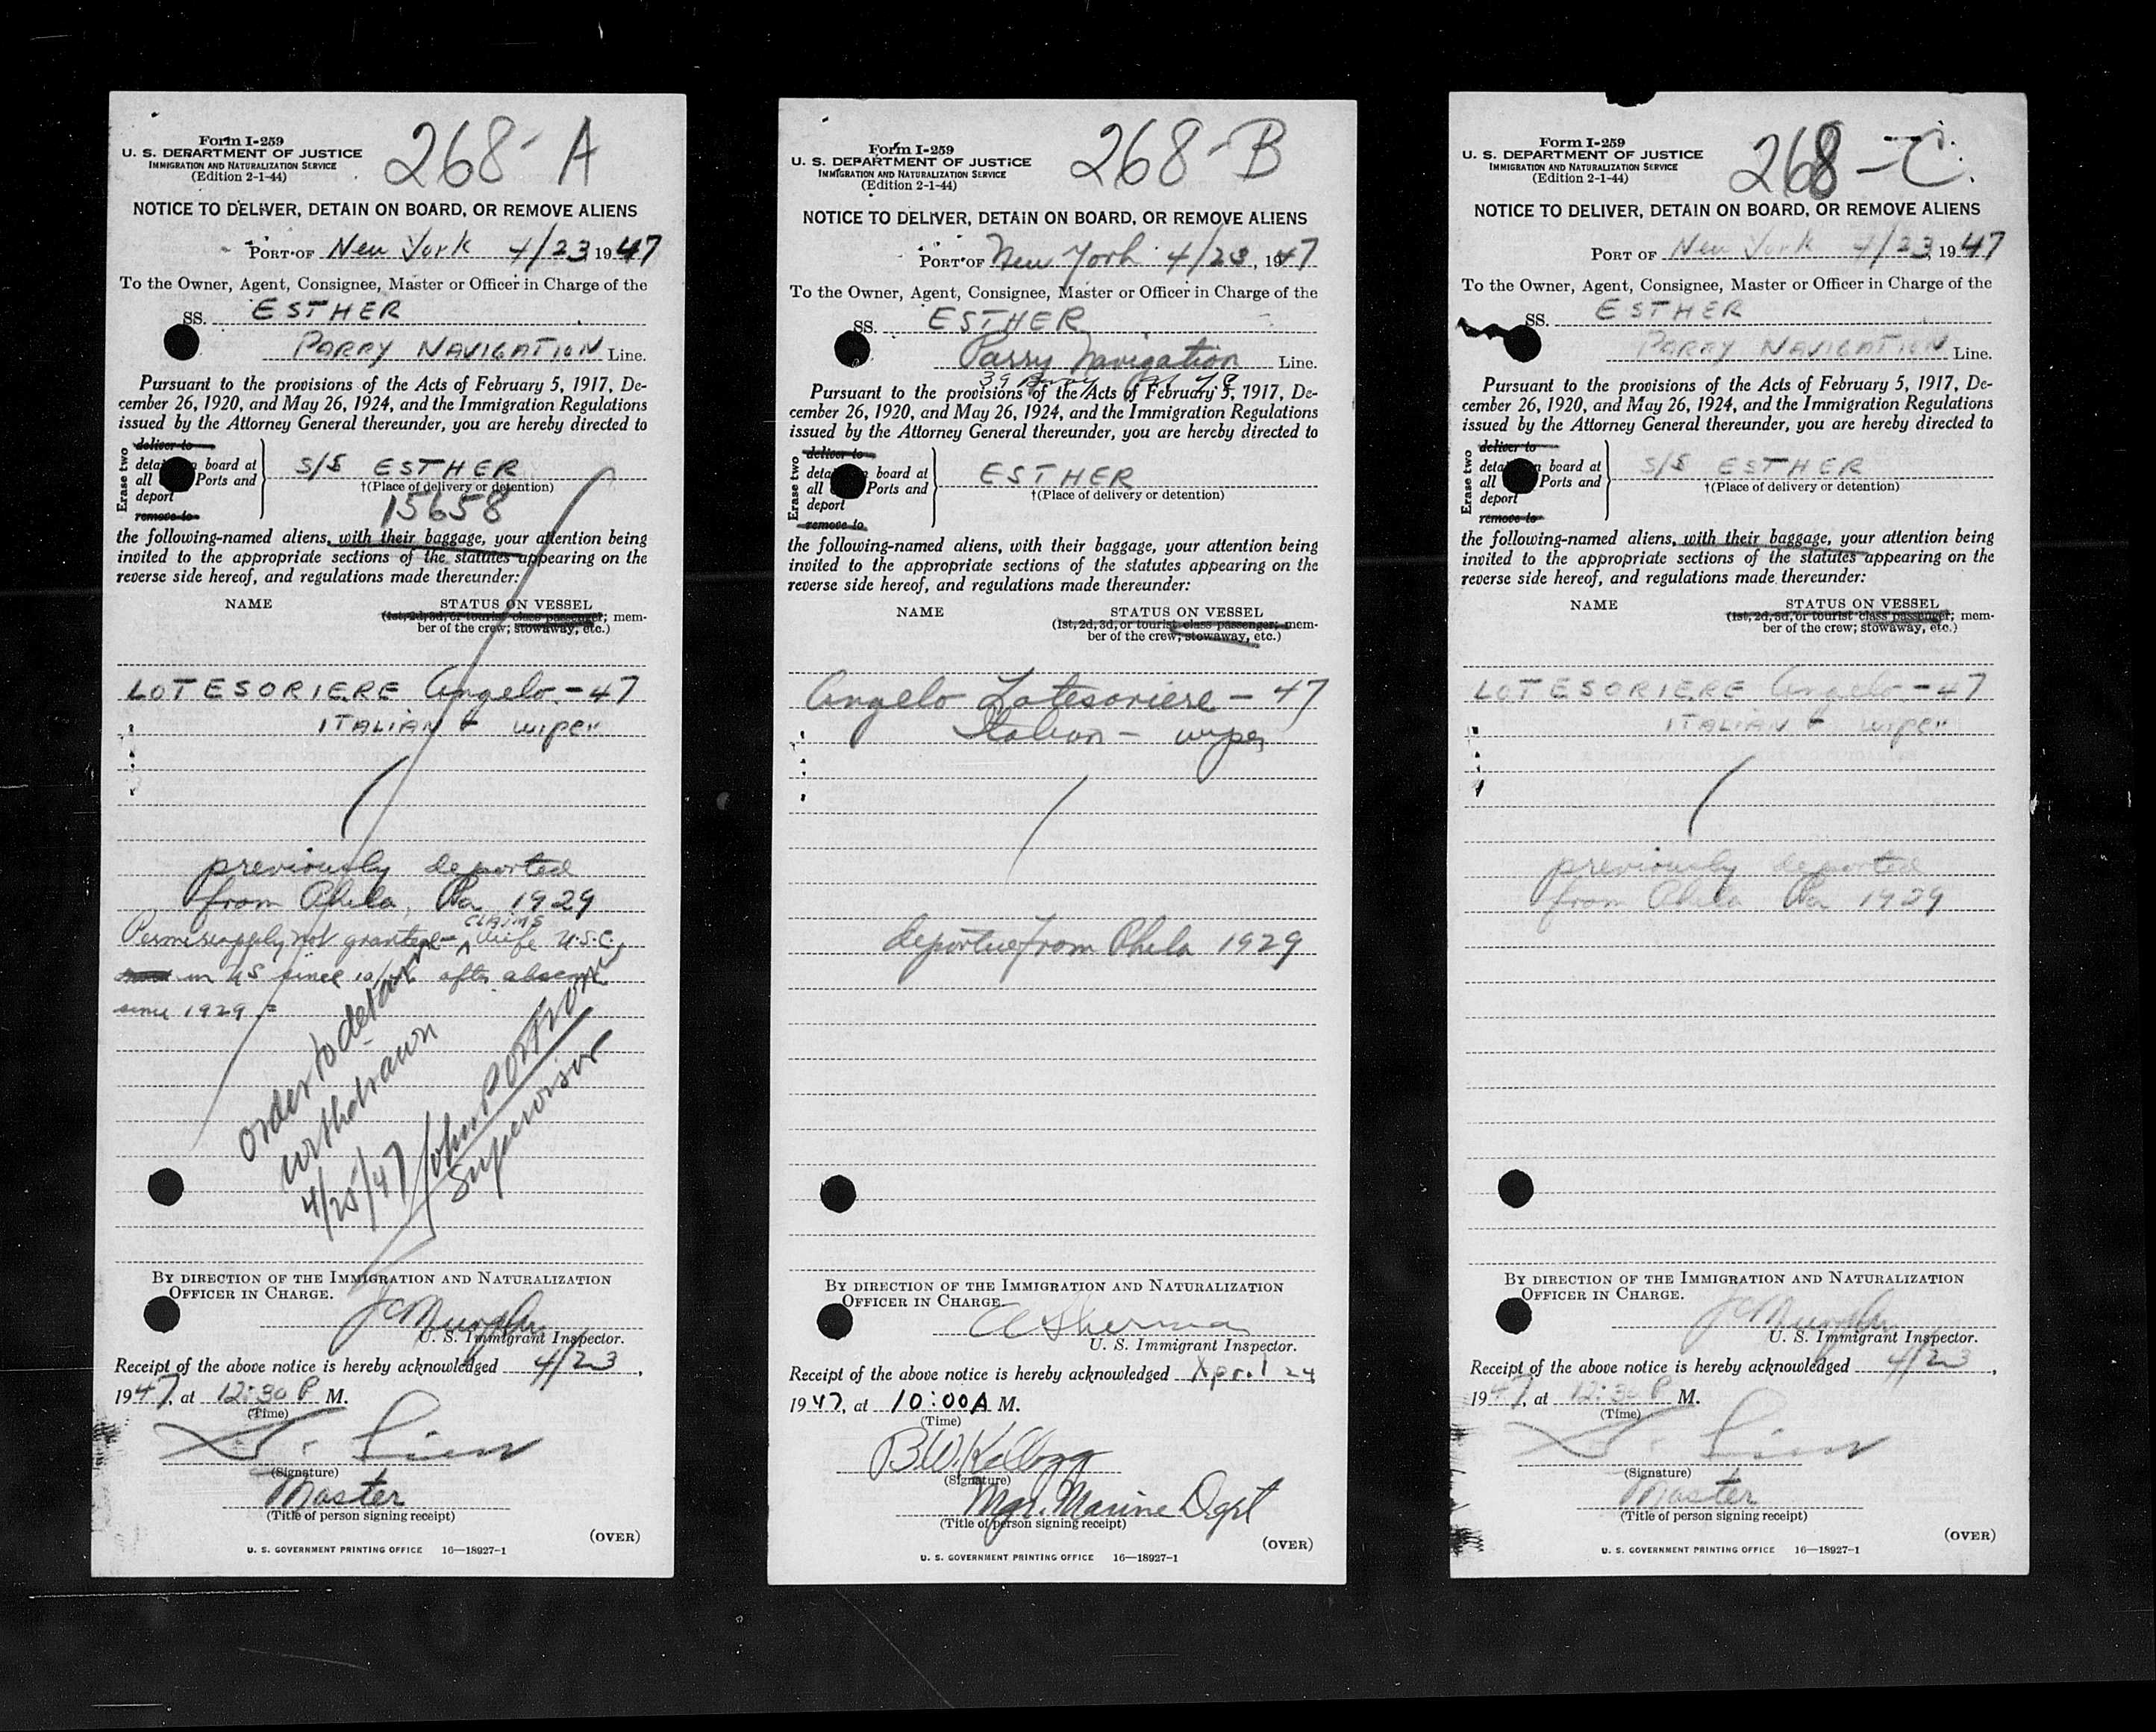 268-A
Form I-259
U. S. DEPARTMENT OF JUSTICE
IMMIGRATION AND NATURALIZATION SERVICE
(Edition 2-1-44)
NOTICE TO DELIVER, DETAIN ON BOARD, OR REMOVE ALIENS
PORT OF New York 4/23, 1947
To the Owner, Agent, Consignee, Master or Officer in Charge of the
SS. ESTHER
PARRY NAVIGATION Line.
Pursuant to the provisions of the Acts of February 5, 1917, De-
cember 26, 1920, and May 26, 1924, and the Immigration Regulations
issued by the Attorney General thereunder, you are hereby directed to
Erase two
deliver to
board at
all Ports and
deport
remove to
S/S ESTHER
†(Place of delivery or detention)
15658
the following-named aliens, with their baggage, your attention being
invited to the appropriate sections of the statutes appearing on the
reverse side hereof, and regulations made thereunder:
NAME STATUS ON VESSEL
(1st, 2d, 3d, or tourist class passenger; mem-
ber of the crew; stowaway, etc.)
LOTESORIERE Angelo - 47
ITALIAN wiper
previously deported
from Phila, Pa 1929
CLAIMS
not granted wife U.S.C.
in US since after
since 1929
order to detain
withdrawn
4/25/47 John
Supervisor
BY DIRECTION OF THE IMMIGRATION AND NATURALIZATION
OFFICER IN CHARGE.
JC Murphy
U. S. Immigrant Inspector.
Receipt of the above notice is hereby acknowledged 4/23,
1947, at 12:30 P M.
(Time)
(Signature)
Master
(Title of person signing receipt)
(OVER)
U. S. GOVERNMENT PRINTING OFFICE 16—18927-1
268-B
Form I-259
U. S. DEPARTMENT OF JUSTICE
IMMIGRATION AND NATURALIZATION SERVICE
(Edition 2-1-44)
NOTICE TO DELIVER, DETAIN ON BOARD, OR REMOVE ALIENS
PORT OF New York 4/23, 1947
To the Owner, Agent, Consignee, Master or Officer in Charge of the
SS. ESTHER
Parry Navigation Line.
Pursuant to the provisions of the Acts of February 5, 1917, De-
cember 26, 1920, and May 26, 1924, and the Immigration Regulations
issued by the Attorney General thereunder, you are hereby directed to
Erase two
deliver to
board at
all Ports and
deport
remove to
ESTHER
†(Place of delivery or detention)
the following-named aliens, with their baggage, your attention being
invited to the appropriate sections of the statutes appearing on the
reverse side hereof, and regulations made thereunder:
NAME STATUS ON VESSEL
(1st, 2d, 3d, or tourist class passenger; mem-
ber of the crew; stowaway, etc.)
Angelo Lotesoriere - 47
Italian - wiper
from Phila 1929
BY DIRECTION OF THE IMMIGRATION AND NATURALIZATION
OFFICER IN CHARGE.
A Sherman
U. S. Immigrant Inspector.
Receipt of the above notice is hereby acknowledged April 24
1947, at 10:00 A M.
(Time)
B.W. Kellogg
(Signature)
Mgr. Marine Dept
(Title of person signing receipt)
(OVER)
U. S. GOVERNMENT PRINTING OFFICE 16—18927-1
268-C
Form I-259
U. S. DEPARTMENT OF JUSTICE
IMMIGRATION AND NATURALIZATION SERVICE
(Edition 2-1-44)
NOTICE TO DELIVER, DETAIN ON BOARD, OR REMOVE ALIENS
PORT OF New York 4/23 1947
To the Owner, Agent, Consignee, Master or Officer in Charge of the
SS. ESTHER
PARRY NAVIGATION Line.
Pursuant to the provisions of the Acts of February 5, 1917, De-
cember 26, 1920, and May 26, 1924, and the Immigration Regulations
issued by the Attorney General thereunder, you are hereby directed to
Erase two
deliver to
board at
all Ports and
deport
remove to
S/S ESTHER
†(Place of delivery or detention)
the following-named aliens, with their baggage, your attention being
invited to the appropriate sections of the statutes appearing on the
reverse side hereof, and regulations made thereunder:
NAME STATUS ON VESSEL
(1st, 2d, 3d, or tourist class passenger; mem-
ber of the crew; stowaway, etc.)
LOTESORIERE Angelo - 47
ITALIAN wiper
previously deported
from Phila Pa 1929
BY DIRECTION OF THE IMMIGRATION AND NATURALIZATION
OFFICER IN CHARGE.
JC Murphy
U. S. Immigrant Inspector.
Receipt of the above notice is hereby acknowledged 4/23,
1947, at 12:30 P M.
(Time)
(Signature)
Master
(Title of person signing receipt)
(OVER)
U. S. GOVERNMENT PRINTING OFFICE 16—18927-1